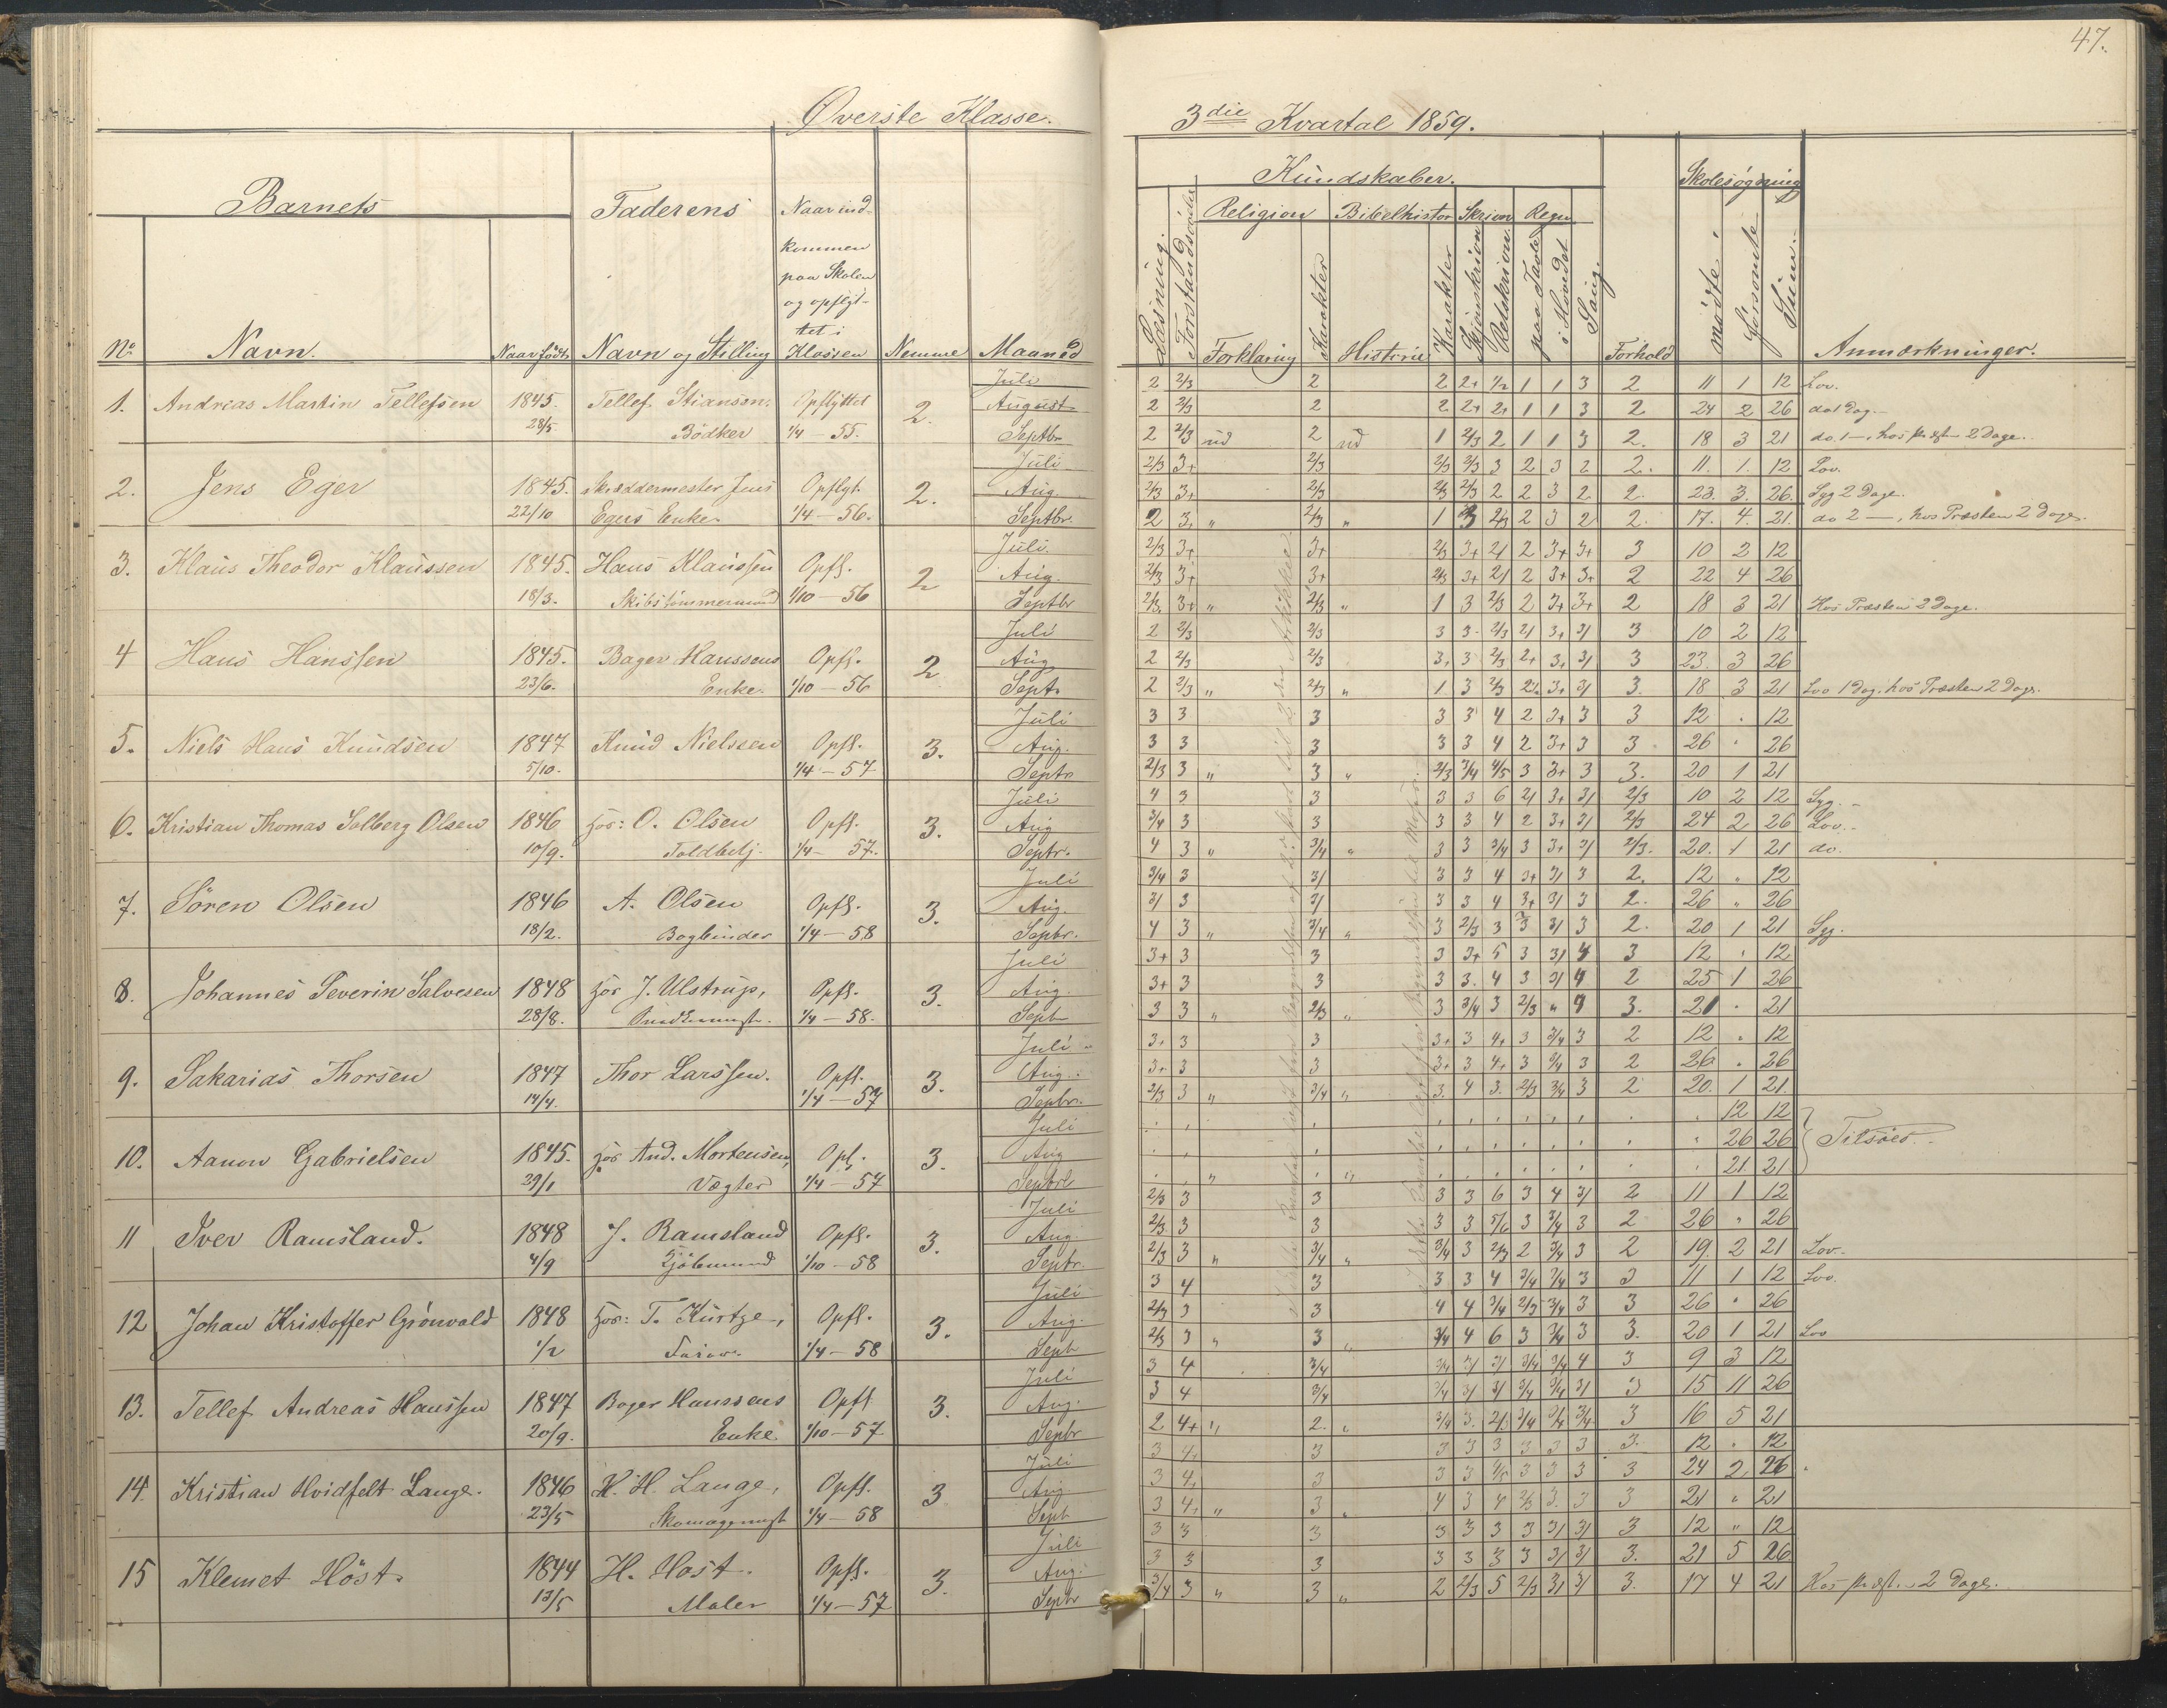 47.
Øverste Klasse.
3die Kvartal 1859.
Barnets Faderens Naar ind-
kommen
paa Skolen
og opflyt-
tet i
No Navn. Naar født Navn og Stilling Klassen Nemme Maaned
Kundskaber. Skolesøgning
Religion Bibelhistor Skrivn Regn
Læsning. Forklaring Karakter Historie Karakter Skjønskrivn Retskrivn. paa Tavle i Hovedet Sang. Forhold mødte forsømte Sum. Anmærkninger.
1. Andreas Martin Tellefsen 1845. Tellef Stiansen, Opflyttet 2.
28/5. Bødker 1/4 – 55.
Juli 2 2/3 2 2 2+ 1/2 1 1 3 2 11 1 12 Lov.
August 2 2/3 2 2 2+ 2+ 1 1 3 2 24 2 26 do 1 Dag.
Septbr 2 2/3 ud 2 ud 1 2/3 2 1 1 3 2. 18 3 21
2. Jens Eger 1845. Skræddermester Jens Opflyt. 2.
22/10 Egers Enke. 1/4 – 56.
Juli 2/3 3+ 2/3 2/3 2/3 3 2 3 2 2. 11. 1. 12 Lov.
Aug. 2/3 3+ 2/3 2/3 2/3 2 2 3 2 2. 23. 3. 26. Syg 2 Dage.
Septbr. 2 3+ " 2/3 " 1 3 2/3 2 3 2 2. 17. 4. 21. do 2 –, hos Præsten 2 Dage.
3. Klaus Theodor Klaussen 1845. Hans Klaussen Opfl. 2
18/3. Skibstømmermand 1/10 – 56
Juli. 2/3 3+ 3+ 2/3 3+ 2/ 2 3+ 3+ 3 10 2 12
Aug. 2/3 3+ 3+ 2/3 3+ 2/ 2 3+ 3+ 2 22 4 26
Septbr 2/3 3+ " 2/3 " 1 3 2/3 2 3+ 3+ 2 18 3 21 Hos Præsten 2 Dage.
4 Hans Hanssen 1845. Bager Hanssens Opfl. 2
23/6. Enke. 1/10 – 56
Juli 2 2/3 2/3 3 3 2/3 2/ 3+ 3/ 3 10 2 12
Aug 2 2/3 2/3 3+ 3 2/3 2+ 3+ 3/ 3 23. 3 26
Septr 2 2/3 " 2/3 " 1 3 2/3 2 3+ 3/ 3. 18 3 21 Lov 1 Dag. hos Præsten 2 Dage.
5. Niels Hans Knudsen 1847 Knud Nielssen Opfl. 3.
5/10. 1/4 – 57
Juli 3 3 3 3 3 4 2 3+ 3 3 12 . 12
Aug. 3 3 3 3 3 4 2 3+ 3 3 26 . 26
Septr 2/3 3 " 3 " 2/3 3/4 4/5 3 3+ 3 3. 20 1 21
6. Kristian Thomas Solberg Olsen 1846 hos: O. Olsen Opfl. 3.
10/9. Toldbetj. 1/4 – 57.
Juli 4 3 3 3 3 6 2/ 3+ 3/ 2/3 10 2 12 Syg.
Aug 3/4 3 3 3 3 4 2 3+ 3/ 2/3 24 2 26 Lov.
Septr. 4 3 " 3/4 " 3 3 3/4 3 3+ 3/ 2/3. 20. 1 21 do.
7. Søren Olsen 1846 A. Olsen Opfl. 3.
18/2. Bogbinder 1/4 – 58
Juli 3/4 3 3/ 3 3 4 3+ 3/ 3 2. 12 " 12
Aug. 3/ 3 3/ 3 3 4 3+ 3/ 3 2. 26 " 26
Septbr. 4 3 " 3/4 " 3 2/3 3 3 3/ 3 2. 20 1 21 Syg.
8. Johannes Severin Salvesen 1848 hos J. Ulstrup, Opfl. 3.
28/8. 1/4 – 58.
Juli 3+ 3 3 3 3+ 5 3 3/ 4 3 12 . 12
Aug. 3+ 3 3 3 3. 4 3 3/ 4 2 25 1 26
Septb 3 3 " 2/3 " 3 3/4 3 2/3 " 4 3. 21 . 21
9. Sakarias Thorsen 1847 Thor Larssen. Opfl. 3.
14/4. 1/4 – 57
Juli 3+ 3 3 3+ 3 4+ 3 3/4 3 2 12 " 12
Aug. 3+ 3 3 3+ 3 4+ 3 3/4 3 2 26 . 26
Septbr. 2/3 3 " 3/4 " 3. 4 3. 2/3 3/4 3 2 20. 1 21
10. Aanon Gabrielsen 1845. hos And. Mortensen, Opf. 3.
29/1 Vægter 1/4 – 57
Juli 12 12
Aug 26 26 Tilsøes.
Septbr " " 21 21
11 Iver Ramsland. 1848 J. Ramsland Opfl. 3.
4/9 Kjøbmand 1/10 – 58
Juli 2/3 3 3 3 3 6 3 4 3/ 2 11 1 12
Aug. 2/3 3 3 3 3 5/6 3 3/4 3 2 26 " 26
Septr. 2/3 3 " 3/4 " 3/4 3 2/3 2 3/4 3 2 19 2 21 Lov.
12 Johan Kristoffer Grønvold 1848 hos: T. Kurtze, Opfl. 3.
1/2 1/4 – 58
Juli 3 4 3 3 3 4 3/4 3/4 3 3 11 1 12 Lov.
Aug. 2/3 3 3 4 4 3/4 2/3 3/4 3 3 26 " 26
Septb 2/3 3 " 3 " 3/4 4 6 3 3/4 3 3. 20 1 21 Lov
13. Tellef Andreas Hanssen 1847 Bager Hanssens Opfl 3.
20/9. Enke. 1/10 – 57
Juli 3 4 3/4 3/4 3/ 3/ 3/4 3/4 4 3 9 3 12
Aug. 3 4 3/4 3/4 3/ 3/ 3/4 3/4 3/ 3 15 11 26
Septbr 2 4+ " 2. " 3/4 3. 2/. 3/4 3/4 3/4 3 16 5 21
14. Kristian Hvidfelt Lange. 1846 H. H. Lange, Opfl. 3
23/5 1/4 – 58
Juli 3 4+ 3 3 3 3 3 3 3 3. 12 . 12
Aug 3 4+ 3 3 3 4/5 3 3 3 3 24 2 26
Septb 3 4+ " 3 " 4 3 4 2/3 3. 3 3 21 " 21
15 Klemet Høst. 1844 H. Høst. Opfl. 3.
13/5 Maler 1/4 – 57
Juli 3 3 3 3 3 3 3 3/ 3/ 3 12 " 12
Aug. 3 3 3 3 3 3 3 3/ 3/ 3. 21 5 26
Septbr 3/4 3 " 3 " 2 2/3 5 2/3 3/ 3/ 3. 17 4 21 Hos Præst. 2 Dage.